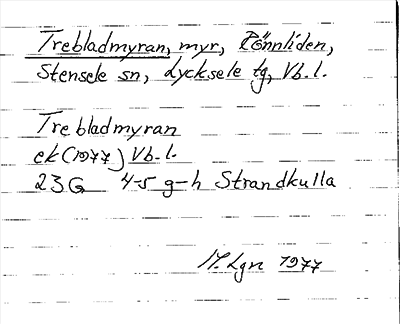 Trebladmyran, myr, Rönnliden,
Stensele sn, Lycksele tg, Vb.l.
Trebladmyran
ek (1977) Vb.l.
23G 4-5 g-h Strandkulla
M.Lgn 1977